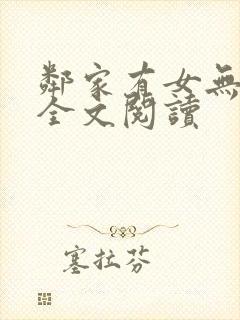 鄰家有女無
全文閱讀
塞拉芬